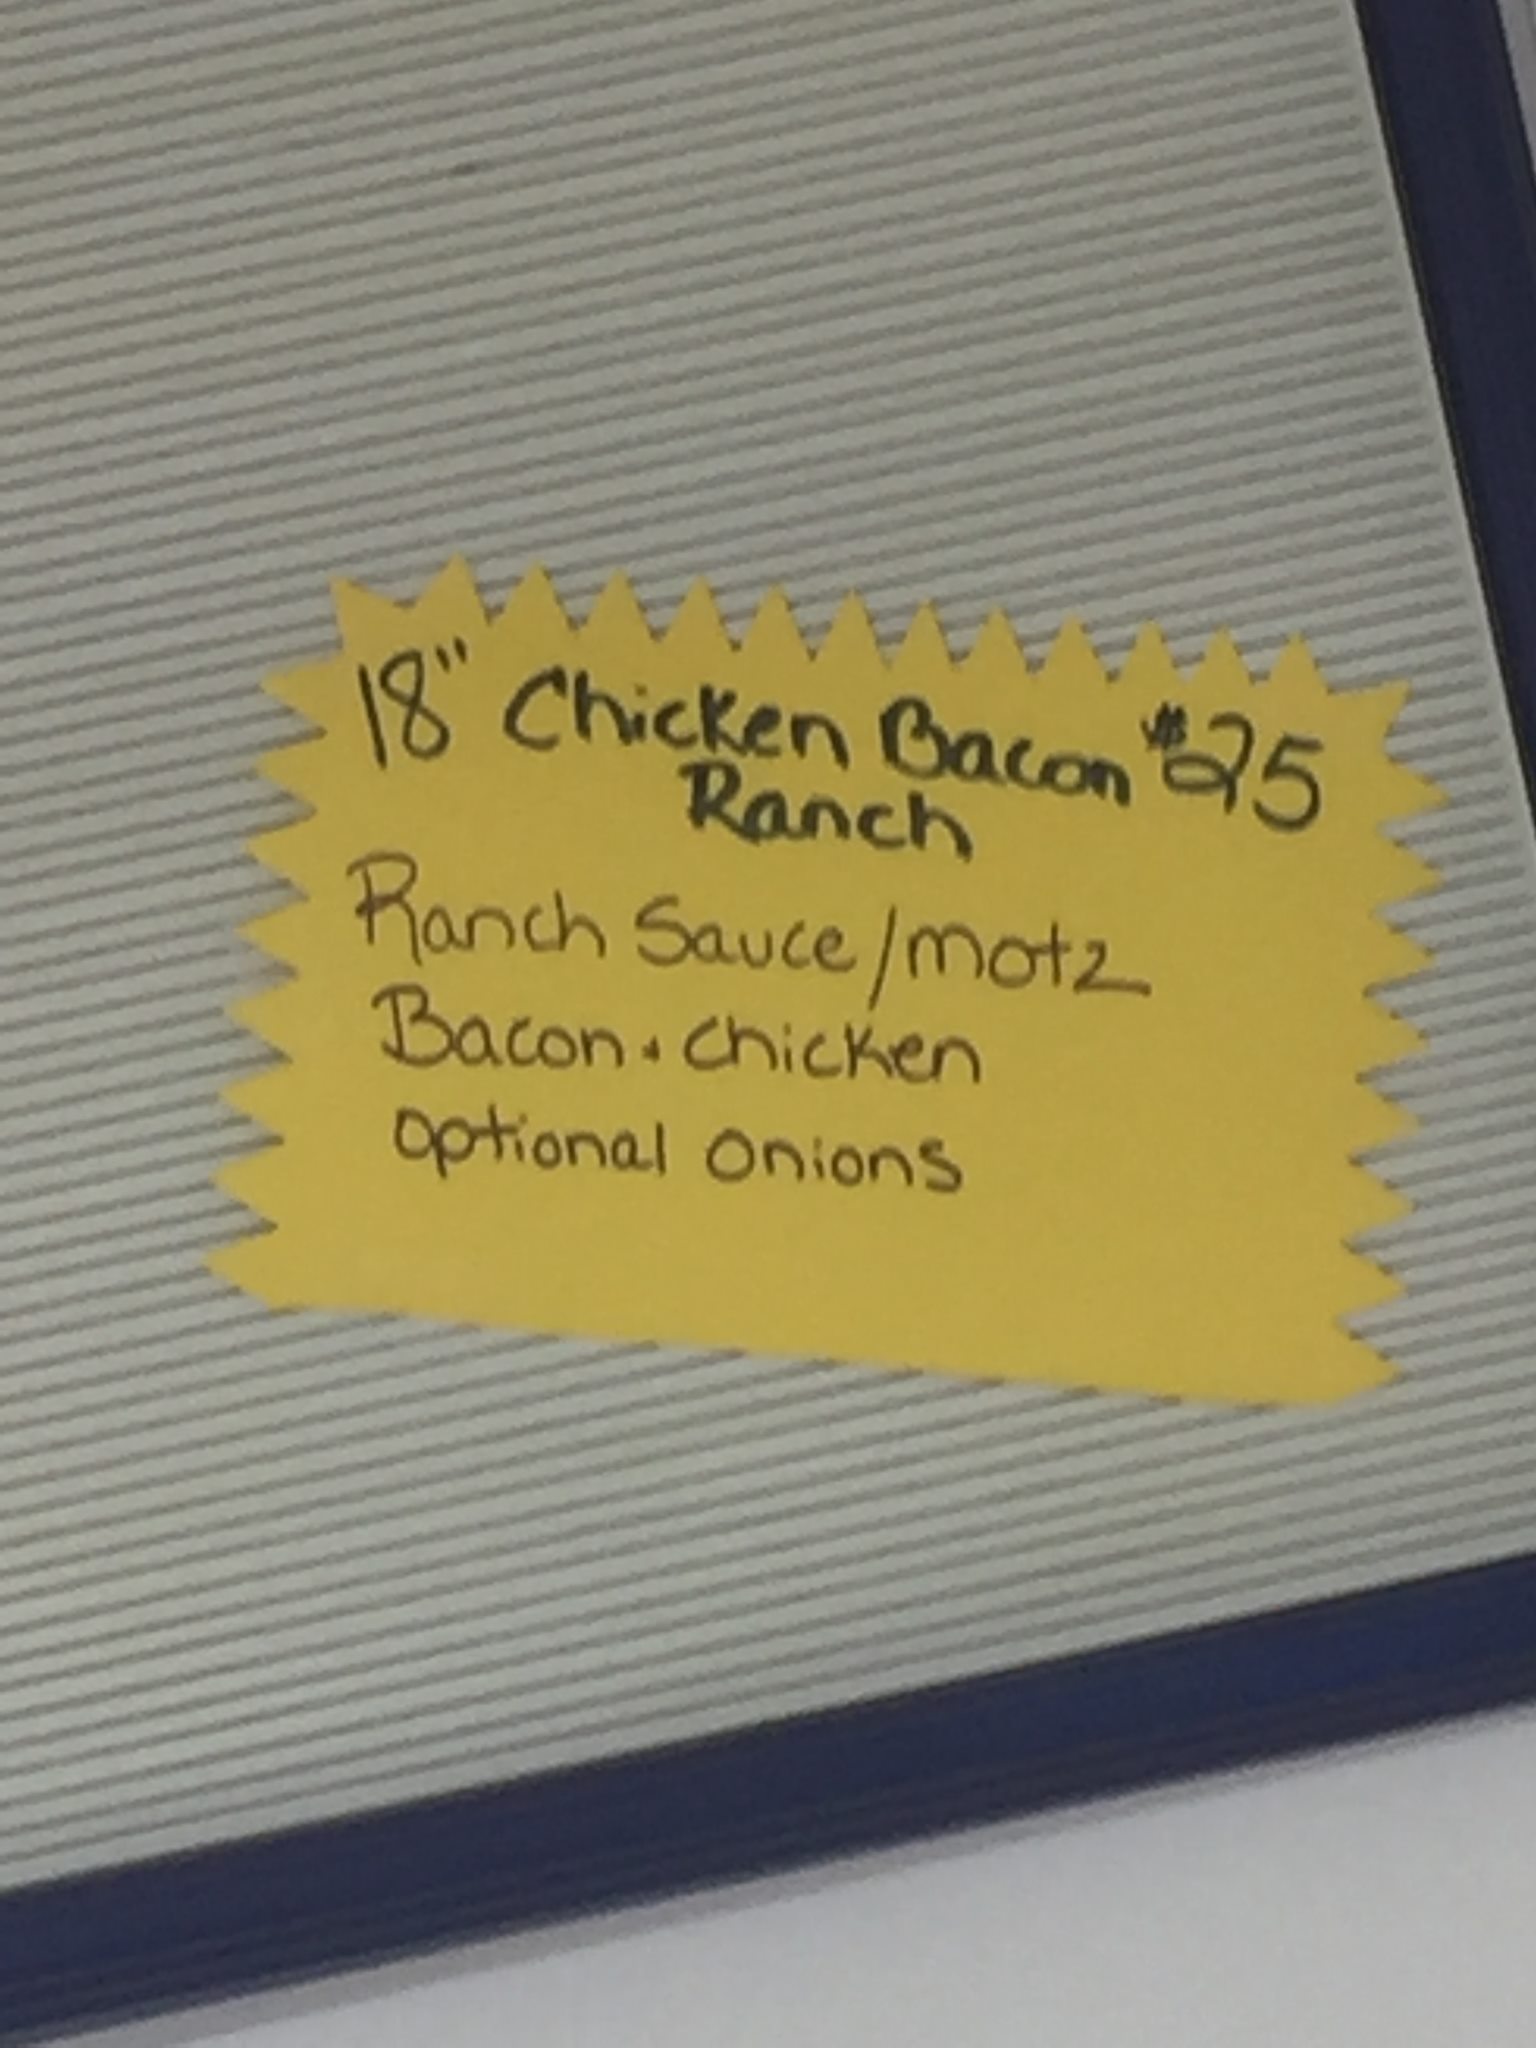 18" Chicken Bacon $25
Ranch
Ranch Sauce/motz
Bacon + chicken
optional onions